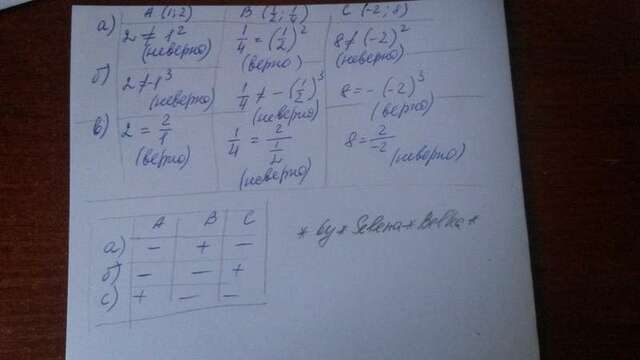 A (1;2) B (1/2; 1/4) C (-2; 8)
а) 2 ≠ 1² (неверно) 1/4 = (1/2)² (верно) 8 ≠ (-2)² (неверно)
б) 2 ≠ -1³ (неверно) 1/4 ≠ -(1/2)³ (неверно) 8 = -(-2)³ (верно)
в) 2 = 2/1 (верно) 1/4 = 2/(1/2) (неверно) 8 = 2/-2 (неверно)
A B C
а) − + −
б) − − +
с) + − −
* by * Selena * Belka *